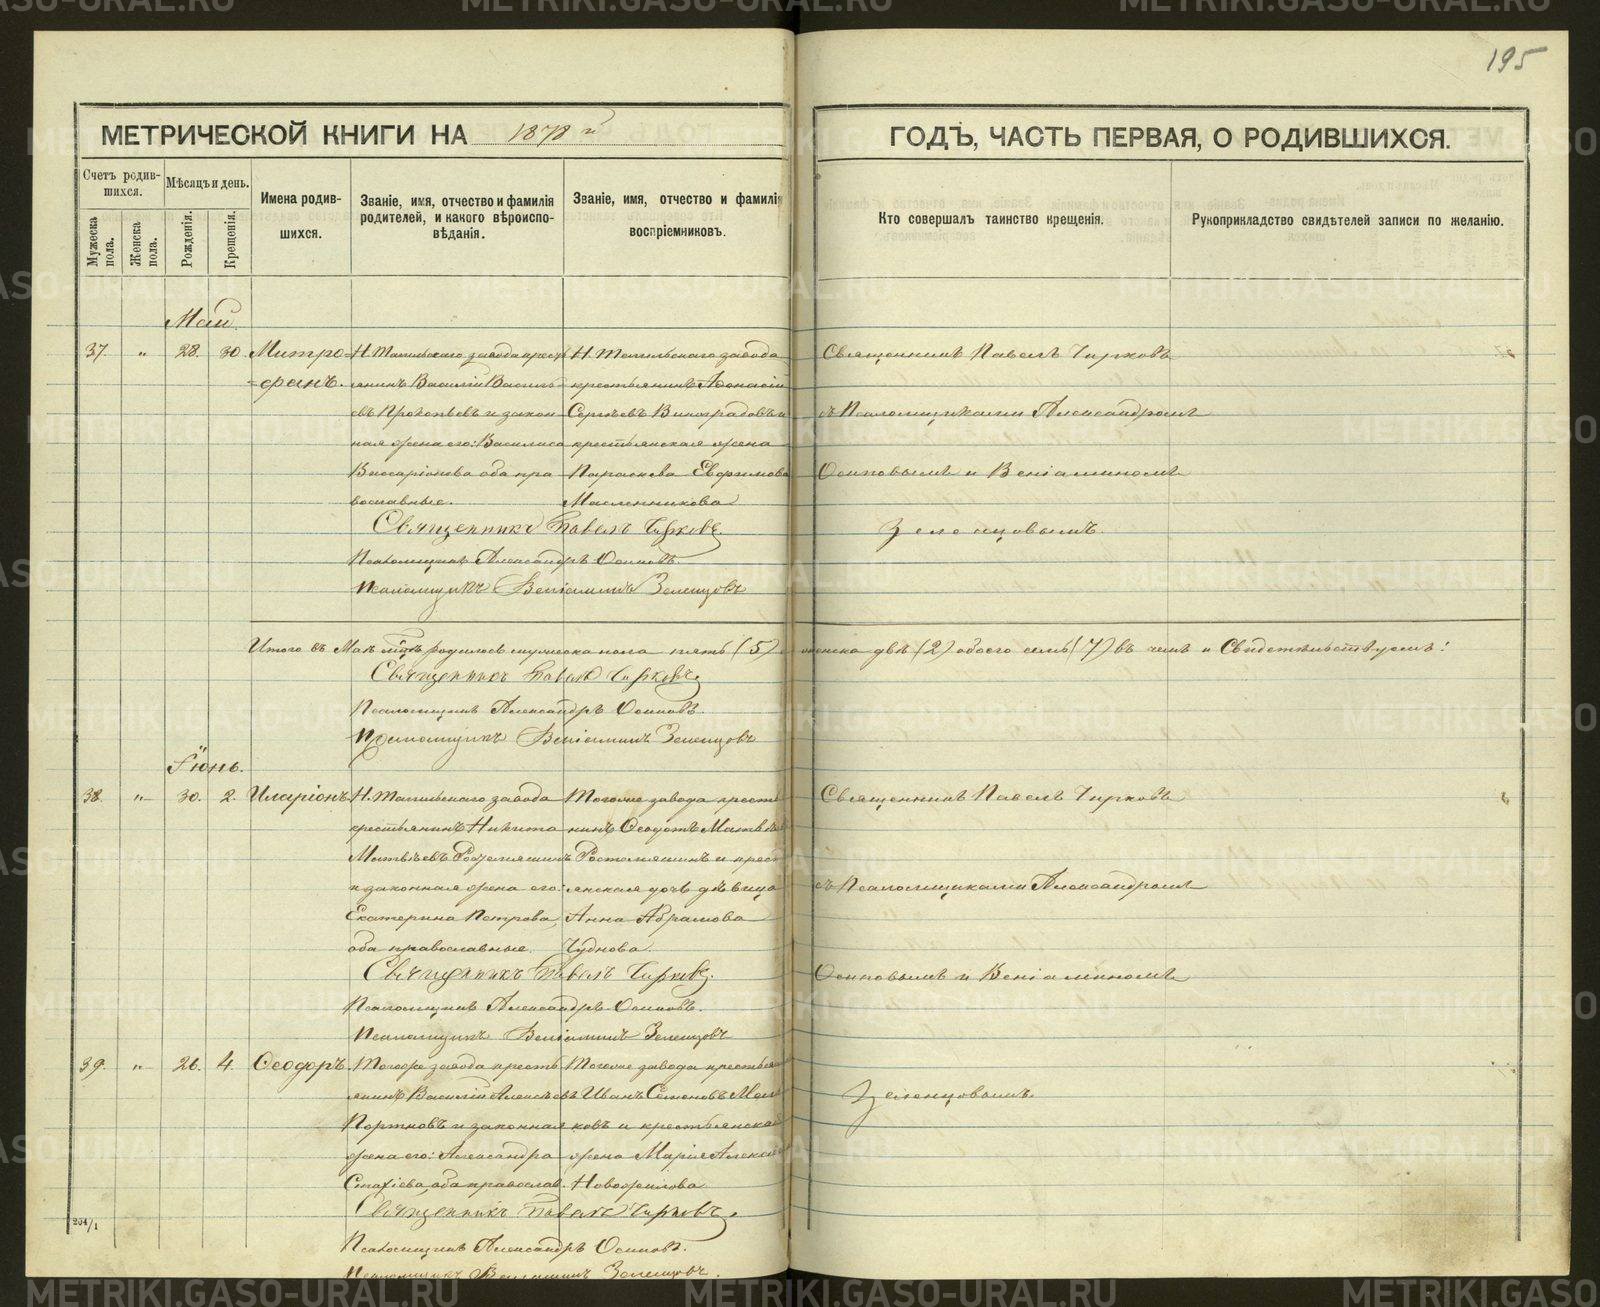 195
МЕТРИЧЕСКОЙ КНИГИ НА 1878 й ГОДЪ, ЧАСТЬ ПЕРВАЯ, О РОДИВШИХСЯ.
Счетъ родив-
шихся.
Мужеска пола.
Женска пола.
Мѣсяцъ и день.
Рожденія.
Крещенія.
Имена родив-
шихся.
Званіе, имя, отчество и фамилія
родителей, и какого вѣроиспо-
вѣданія.
Званіе, имя, отчество и фамилія
воспріемниковъ.
Кто совершалъ таинство крещенія.
Рукоприкладство свидѣтелей записи по желанію.
Май.
37. „ 28. 30. Митро=
=фанъ.
Н. Тагильскаго завода крестъ
янинъ Василій Василь
евъ Прокопьевъ и закон
ная жена его: Василиса
Виссаріонова оба пра
вославные.
Н. Тагильскаго завода
крестьянинъ Афонасій
Сергѣевъ Виноградовъ и
крестьянская жена
Параскева Евфимова
Масленникова
Священникъ Павелъ Чирковъ
съ Псаломщиками Александромъ
Осиповымъ и Веніаминомъ
Зеленцовымъ.
Священникъ Павелъ Чирковъ.
Псаломщикъ Александръ Осиповъ.
Псаломщикъ Веніаминъ Зеленцовъ
Итого въ Маѣ м-цѣ родилось мужеска пола пять (5) женска двѣ (2) обоего семь (7) въ чемъ и Свидѣтельствуемъ:
Священникъ Павелъ Чирковъ.
Псаломщикъ Александръ Осиповъ.
Псаломщикъ Веніаминъ Зеленцовъ
Іюнь.
38. „ 30. 2. Иларіонъ
Н. Тагильскаго завода
крестьянинъ Никита
Матвѣевъ Ростеряшинъ
и законная жена его:
Екатерина Петрова
оба православные.
Тогоже завода кресть
нинъ Ѳеодотъ Матвѣевъ
Ростеряшинъ и крест
янская дочь дѣвица
Анна Абрамова
Чуднова.
Священникъ Павелъ Чирковъ
съ Псаломщиками Александромъ
Осиповымъ и Веніаминомъ
Зеленцовымъ.
Священникъ Павелъ Чирковъ.
Псаломщикъ Александръ Осиповъ.
Псаломщикъ Веніаминъ Зеленцовъ
39. „ 26. 4. Ѳеодоръ.
Тогоже завода кресть
янинъ Василій Алексѣевъ
Портновъ и законная
жена его: Александра
Стахіева, оба православ.
Тогоже завода крестья
Иванъ Семеновъ
ковъ и крестьянская
жена Марія
Священникъ Павелъ Чирковъ.
Псаломщикъ Александръ Осиповъ.
Псаломщикъ Веніаминъ Зеленцовъ.
204/1
METRIKI.GASO-URAL.RU